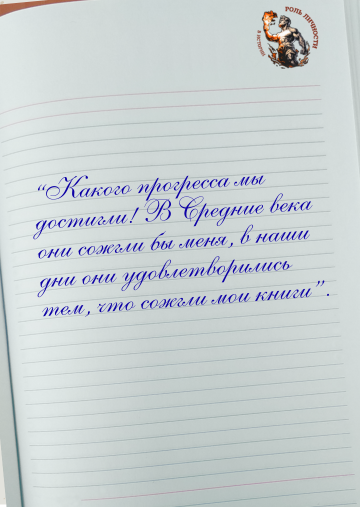 РОЛЬ ЛИЧНОСТИ
В ИСТОРИИ
“Какого прогресса мы
достигли! В Средние века
они сожгли бы меня, в наши
дни они удовлетворились
тем, что сожгли мои книги”.